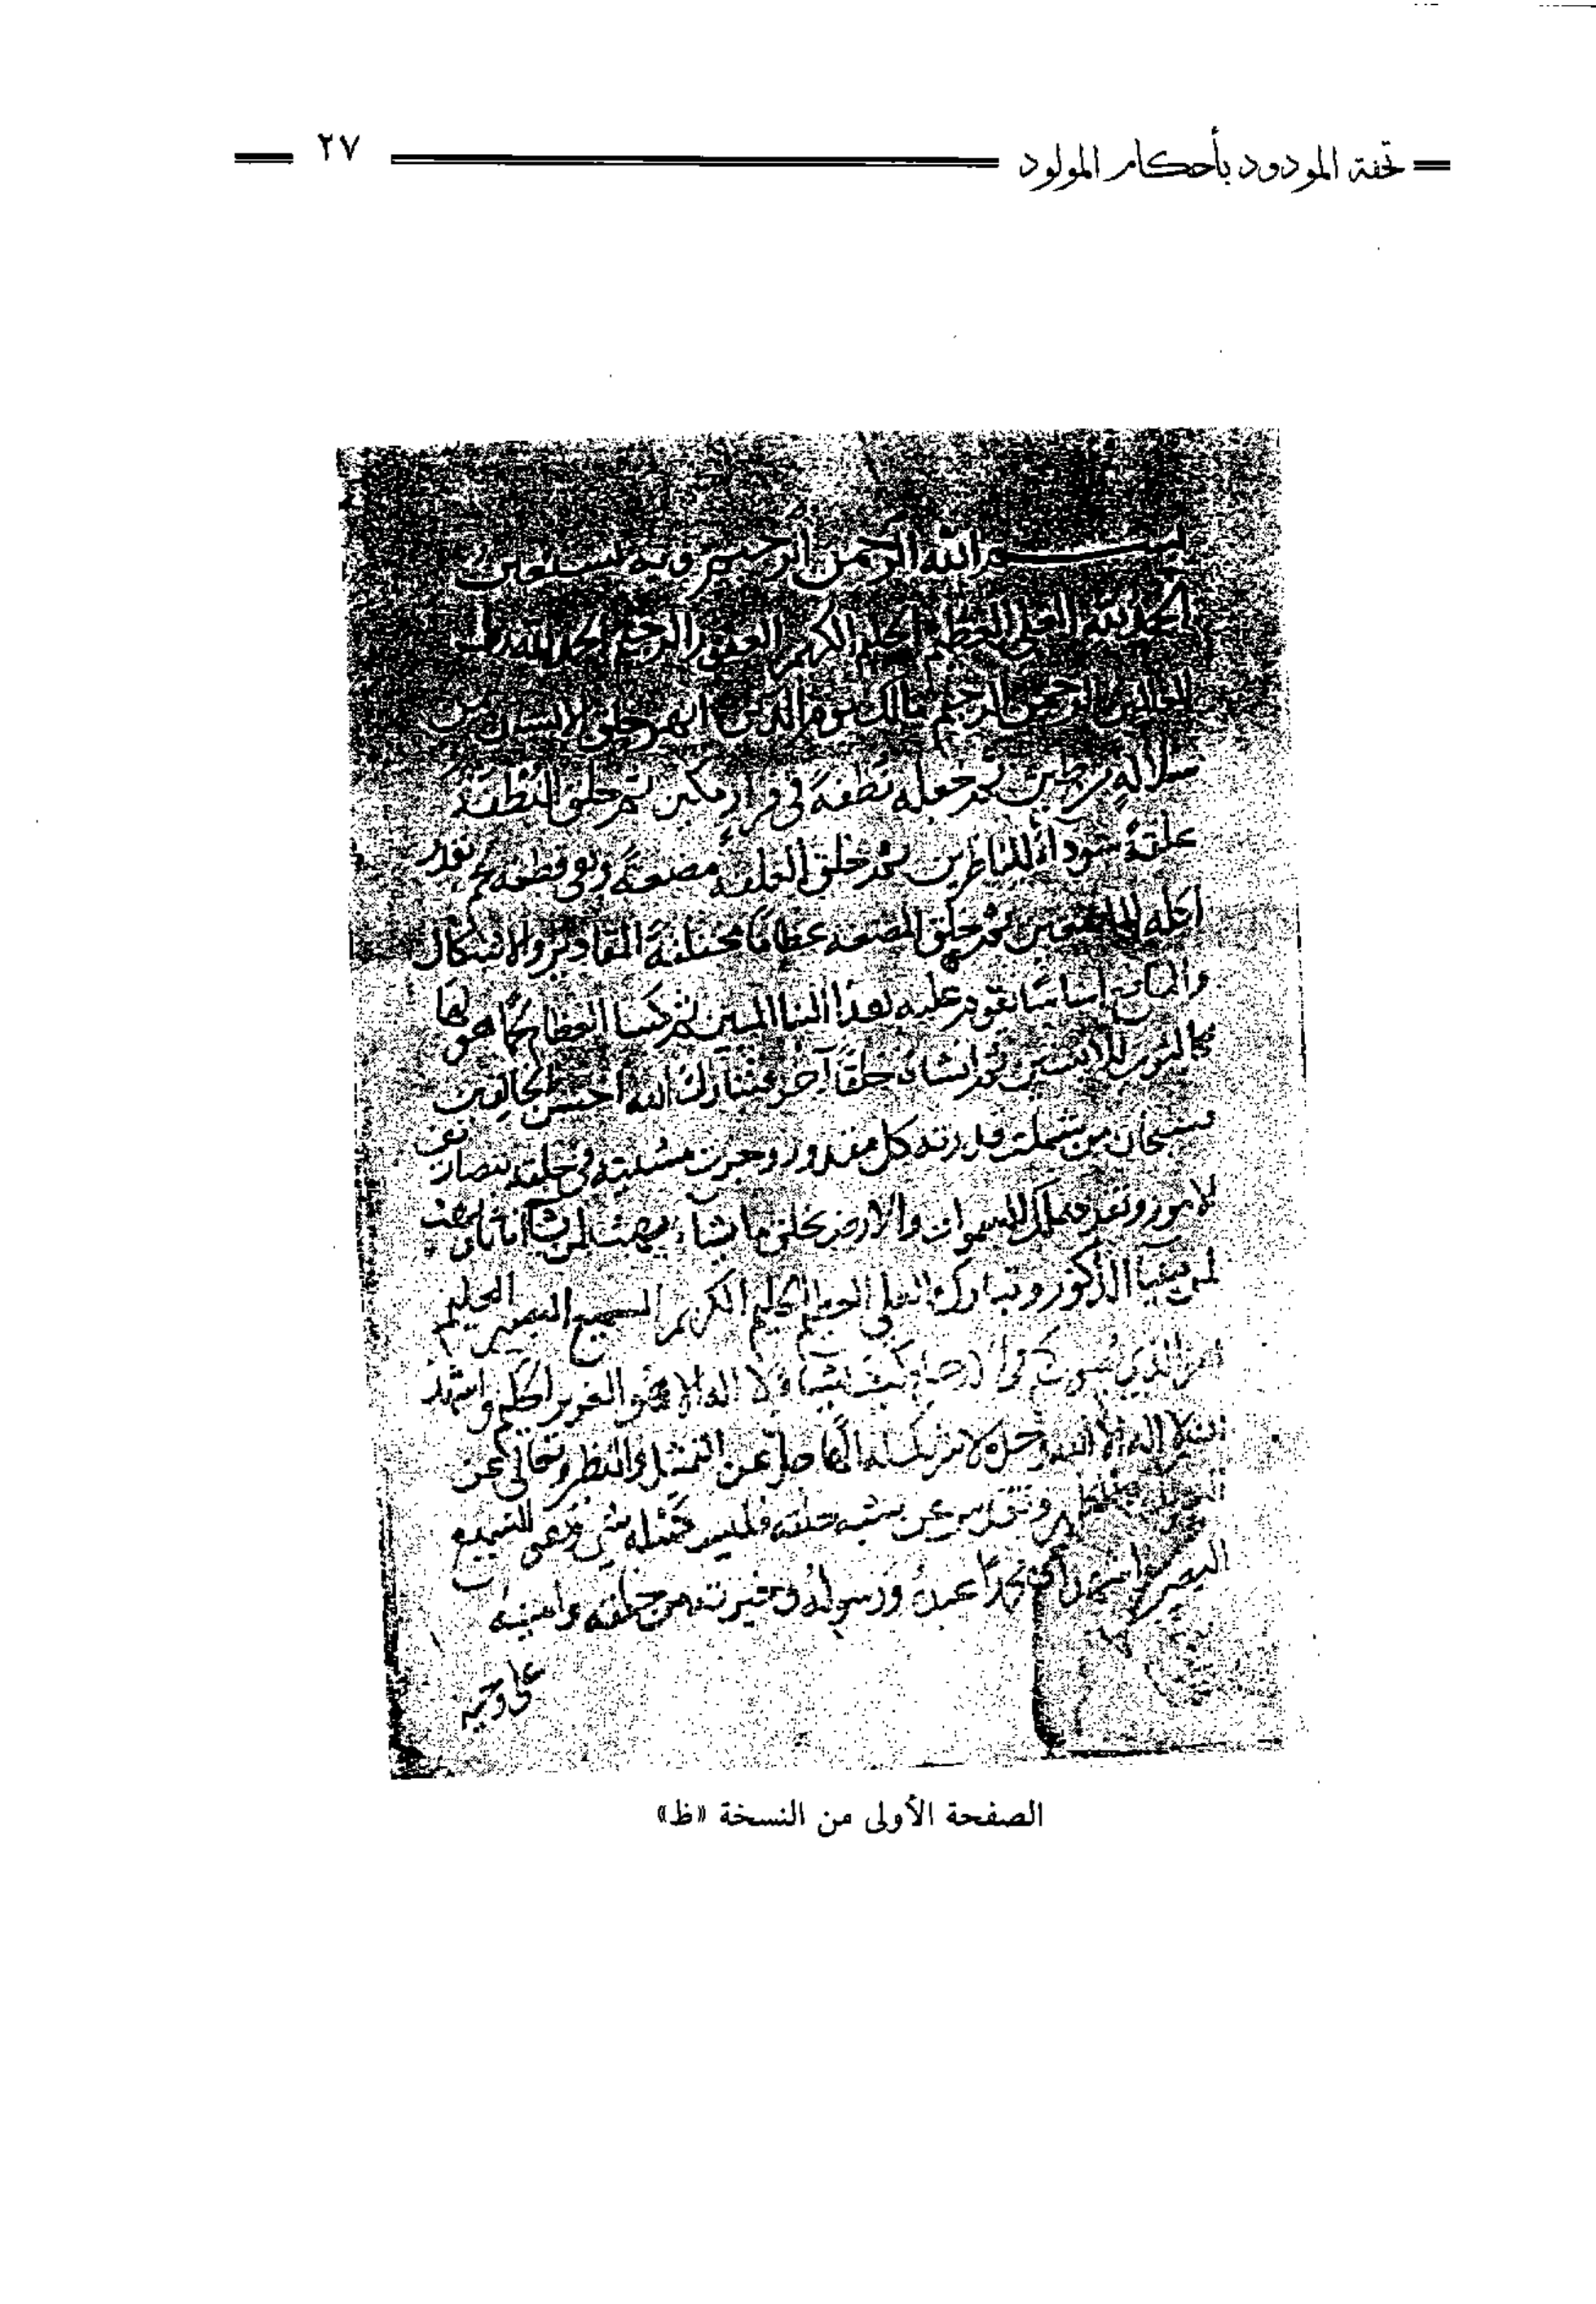 تحفة المودود بأحكام المولود ٢٧
بسم الله الرحمن الرحيم وبه نستعين
الحمد لله العلي العظيم الحليم الكريم الغفور الرحيم الحمد لله رب
العالمين الرحمن الرحيم مالك يوم الدين خلق الانسان من
سلالة من طين ثم جعله نطفة في قرار مكين ثم خلق النطفة
علقة سوداء للناظرين ثم خلق العلقة مضغة وهي قطعة لحم بقدر
اكلة الماضغين ثم خلق المضغة عظاما مختلفة المقادير والاشكال
والمنافع اساسا يقوم عليه هذا البنا المبين ثم كسا العظام لحما هو لها
كالثوب للابسين ثم انشاه خلقا آخر فتبارك الله احسن الخالقين
فسبحان من شملت قدرته كل مقدور وجرت مشيئته في خلقه بتصاريف
الامور وتفرد بملك السموات والارض يخلق ما يشاء يهب لمن يشا اناثا ويهب
لمن يشا الذكور وتبارك العلي العظيم الحليم الكريم السميع البصير العليم
هو الذي يصوركم في الارحام كيف يشا لا اله الا هو العزيز الحكيم واشهد
ان لا اله الا الله وحده لا شريك له الها جل عن المثل والنظير وتعالى عن
وتقدس عن شبه خلقه فليس كمثله شي وهو السميع
البصير واشهد ان محمدا عبده ورسوله وخيرته من خلقه وامينه
على وحيه
الصفحة الأولى من النسخة «ظ»